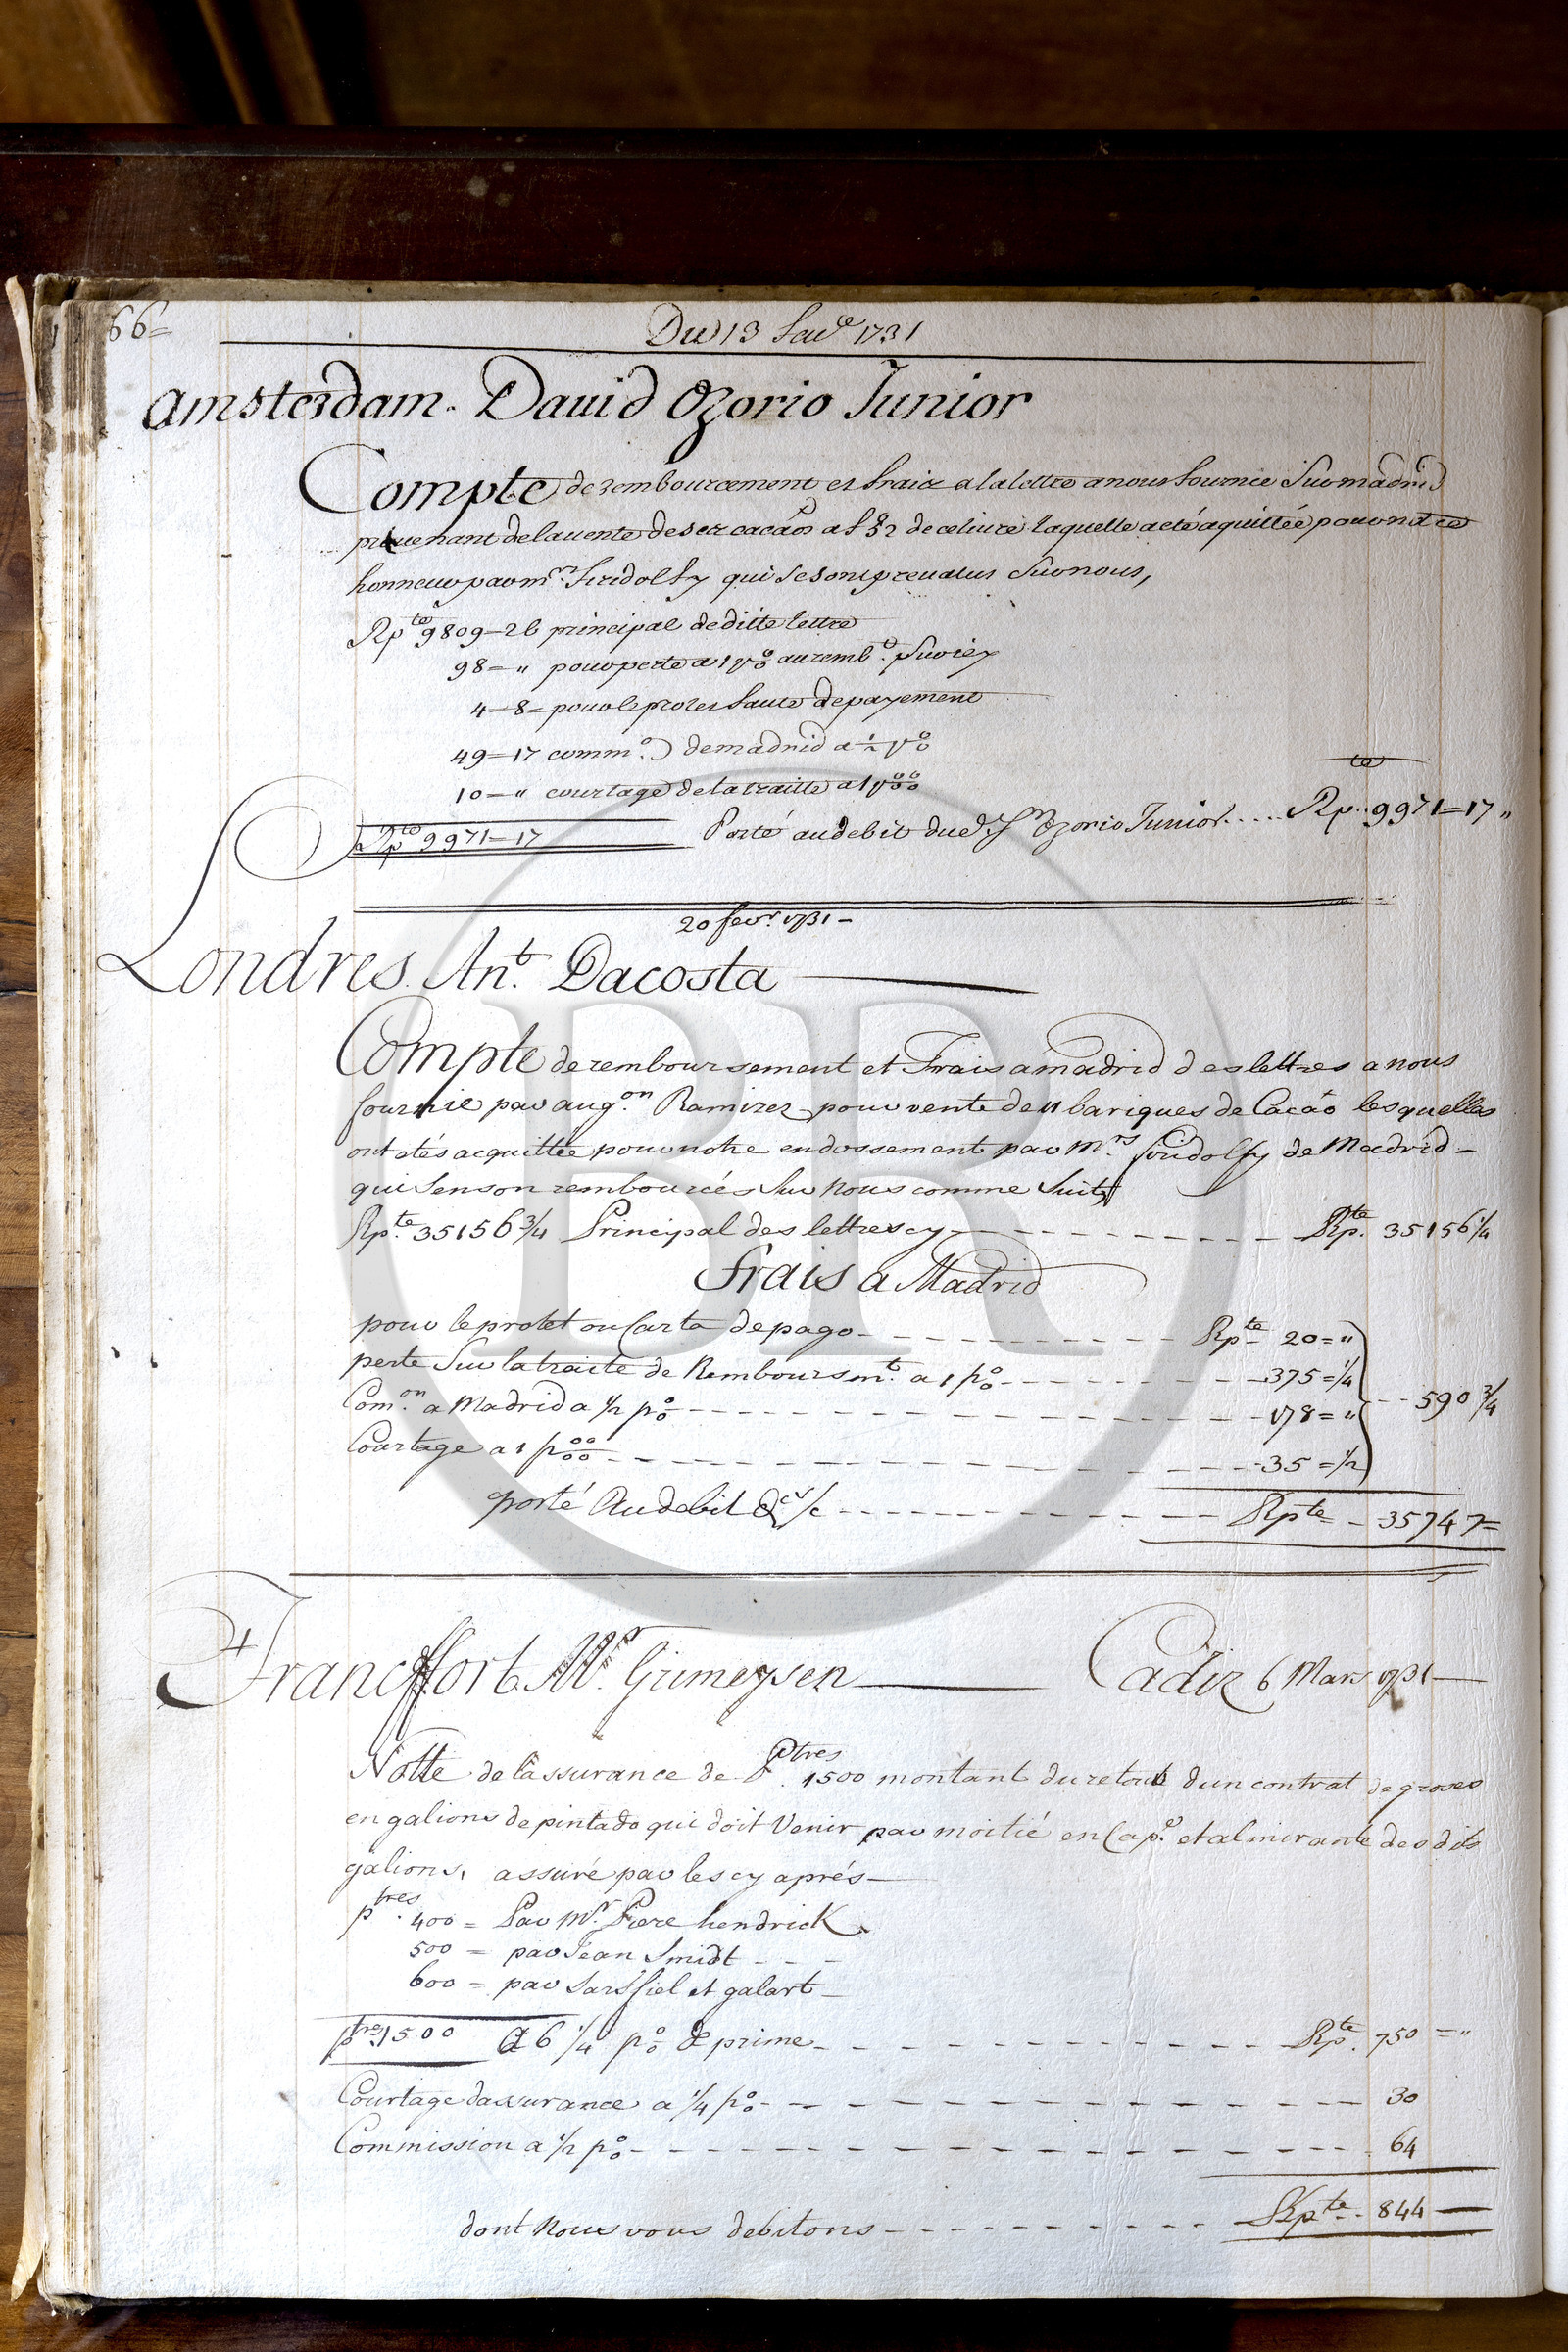 66=
Du 13 feuᵉ 1731
Amsterdam. Dauid Ozorio Junior
Compte de rembourcement et fraix a la lettre a nous fournie Sur madrid
prouenant de la uente de ses cacáos a f 82 de ce liure laquelle a eté aquittée pour notre
honneur par mʳˢ qui se sont preualus Sur nous,
Rpᵗᵉ 9809=26 principal de ditte lettre
98=" pour perte a 1 p% au rembᵗ. Sur icy
4=8= pour le protest faute de payement
49=17 commᵒⁿ de madrid a ½ p%
10=" courtage de la traitte a 1 p‰
Rpᵗᵉ 9971=17 Porté au debit du d. Sʳ Ozorio Junior..... Rpᵗᵉ 9971=17"
20 fevʳ. 1731 -
Londres. Anᵗ. Dacosta
Compte de remboursement et Frais a madrid des lettres a nous
fournie par augᵒⁿ Ramirez pour vente de 11 bariques de Cacáo lesquelles
ont étés acquittée pour notre endossement par Mʳˢ de Madrid -
qui Sen son rembourcés Sur Nous comme Suit
Rpᵗᵉ. 35156 ¾ Principal des lettres cy - - - Rpᵗᵉ. 35156 ¼
Frais a Madrid
pour le protet ou Carta de pago - - - Rpᵗᵉ 20="
perte Sur la traite de Remboursmᵗ. a 1 p% - - - 375=¼
Comᵒⁿ. a Madrid a ½ p% - - - 178=" - - 590 ¾
Courtage a 1 p‰ - - - 35=½
porté Au debit de s/c - - - Rpᵗᵉ - 35747=
Francffort Mʳ. Gumeysen Cadiz 6 Mars 1731
Notte de lassurance de Pᵗʳᵉˢ. 1500 montant du retour dun contrat de groses
en galions de pintado qui doit Venir par moitié en Capᵉ. et almirante des dits
galions, assuré par les cy aprés
pᵗʳᵉˢ. 400 = Par Mʳ. Piere hendrick
500 = par Jean Smidt - - -
600 = par Sarsfiel et galart
pᵗʳᵉˢ. 1500 a 6 ¼ p% de prime - - - Rpᵗᵉ. 750="
Courtage dassurance a ¼ p% - - - 30
Commission a ½ p% - - - 64
dont Nous vous debitons - - - Rpᵗᵉ - 844
RR